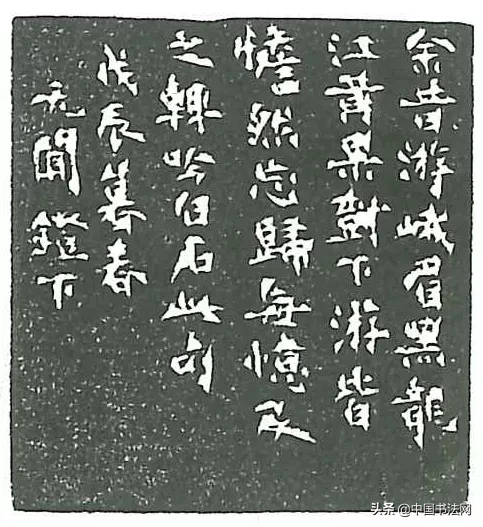 余昔游峨眉黑龍
江黄果樹下游皆
憺然忘歸每憶及
之輒吟白石此句
戊辰暮春
无聞鐙下
头条 @中国书法网